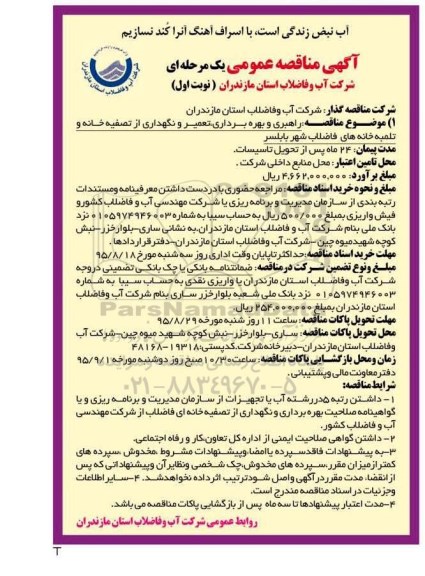 آب نبض زندگی است، با اسراف آهنگ آنرا کُند نسازیم
آگهی مناقصه عمومی یک مرحله ای
شرکت آب وفاضلاب استان مازندران ( نوبت اول)
شرکت آب و فاضلاب استان مازندران
شرکت مناقصه گذار: شرکت آب وفاضلاب استان مازندران
۱) موضوع مناقصه: راهبری و بهره برداری،تعمیر و نگهداری از تصفیه خانه و
تلمبه خانه های فاضلاب شهر بابلسر
مدت پیمان: ۲۴ ماه پس از تحویل تاسیسات.
محل تامین اعتبار: محل منابع داخلی شرکت .
مبلغ برآورد: ۴,۶۶۲,۰۰۰,۰۰۰ ریال
مبلغ و نحوه خرید اسناد مناقصه: مراجعه حضوری با دردست داشتن معرفینامه ومستندات
رتبه بندی از سازمان مدیریت و برنامه ریزی یا شرکت مهندسی آب و فاضلاب کشور و
فیش واریزی بمبلغ ۵۰۰/۰۰۰ ریال به حساب سیبا به شماره ۰۱۰۵۹۷۴۹۴۶۰۰۳ نزد
بانک ملی بنام شرکت آب و فاضلاب استان مازندران.به نشانی ساری-بلوارخزر-نبش
کوچه شهیدمیوه چین-شرکت آب وفاضلاب استان مازندران-دفترقراردادها .
مهلت خرید اسناد مناقصه:حداکثرتاپایان وقت اداری روز سه شنبه مورخ ۹۵/۸/۱۸
مبلغ و نوع تضمین شرکت در مناقصه: ضمانتنامه بانکی یا چک بانکی تضمینی دروجه
شرکت آب وفاضلاب استان مازندران یا واریزی نقدی به حساب سیبا به شماره
۰۱۰۵۹۷۴۹۴۶۰۰۳ نزد بانک ملی شعبه بلوارخزر ساری بنام شرکت آب وفاضلاب
استان مازندران بمبلغ ۲۵۴,۰۰۰,۰۰۰ ریال
مهلت تحویل پاکات مناقصه: ساعت ۱۱ روز شنبه مورخه ۹۵/۸/۲۹
محل تحویل پاکات مناقصه: ساری-بلوارخزر-نبش کوچه شهید میوه چین-شرکت آب
وفاضلاب استان مازندران-دبیرخانه شرکت.کدپستی:۱۹۳۱۸-۴۸۱۶۸
زمان ومحل بازگشایی پاکات مناقصه: ساعت ۱۰/۳۰صبح روز دوشنبه مورخه ۹۵/۹/۱
دفترمعاونت مالی وپشتیبانی.
۰۲۱-۸۸۳۴۹۶۷۰-۵
شرایط مناقصه:
۱- داشتن رتبه ۵ دررشته آب یا تجهیزات از سازمان مدیریت و برنامه ریزی و یا
گواهینامه صلاحیت بهره برداری و نگهداری از تصفیه خانه ای فاضلاب از شرکت مهندسی
آب و فاضلاب کشور.
۲- داشتن گواهی صلاحیت ایمنی از اداره کل تعاون،کار و رفاه اجتماعی.
۳-به پیشنهادات فاقدسپرده یاامضا،وپیشنهادات مشروط ،مخدوش ،سپرده های
کمترازمیزان مقرر،سپرده های مخدوش،چک شخصی ونظایرآن وپیشنهاداتی که پس
ازانقضا، مدت مقرردرآگهی واصل شودترتیب اثرداده نخواهدشد. ۴-سایراطلاعات
وجزئیات در اسناد مناقصه مندرج است.
۴-مدت اعتبار پیشنهادها تا سه ماه پس از بازگشایی پاکات مناقصه می باشد.
روابط عمومی شرکت آب وفاضلاب استان مازندران